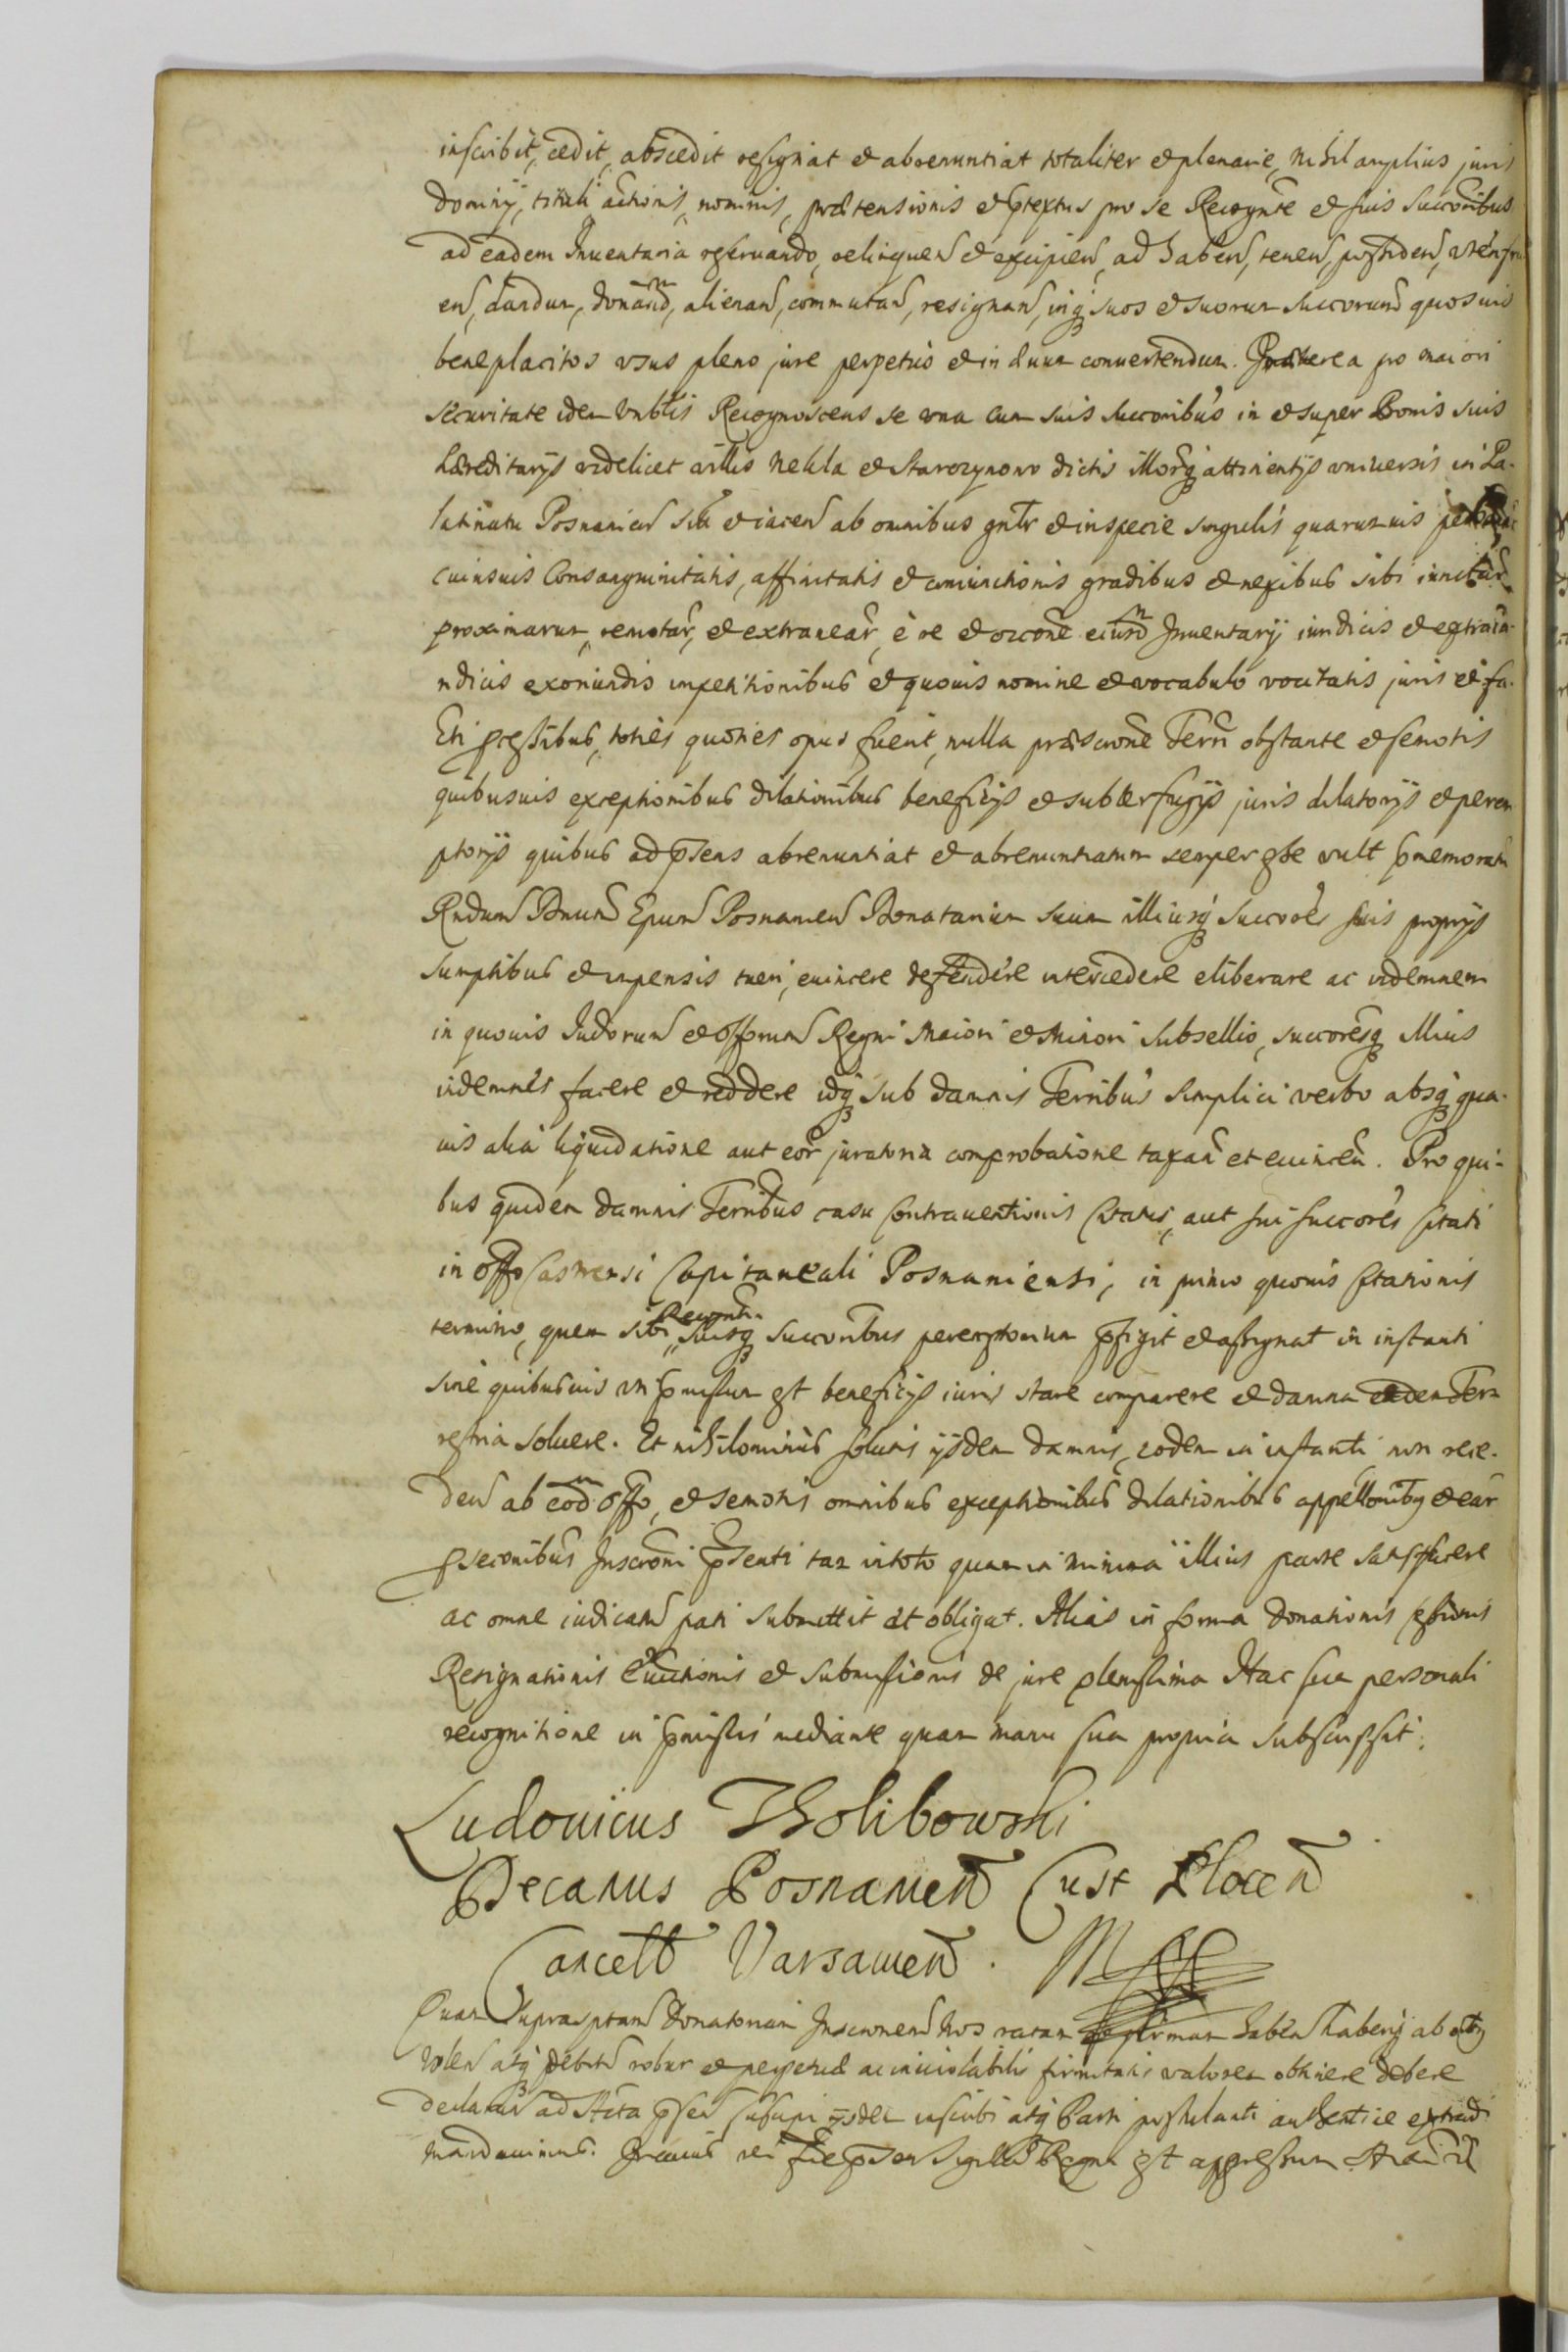 inscribit, cedit, abscedit resignat et abrenuntiat totaliter et plenarie, nihil amplius juris
dominij, tituli actionis, nominis, prætensionis et ptextus pro se Recognte et suis succoribus
ad eadem Inuentaria reseruando, relinquen et excipien, ad haben, tenen, possiden, vtenfru
en, dandum, donand, alienan, commutan, resignan, inq suos et suorum succorum quosuis
beneplacitos vsus pleno jure perpetuo et in æuum conuertendum. Præterea pro maiori
securitate idem Vnblis Recognoscens se vna cum suis succoribus in et super Bonis suis
hæreditarijs videlicet villis Nekla et Starczynowo dictis illorq attinentijs vniuersis in Pa-
latinatu Posnanien sitis et iacen ab omnibus gnlr et in specie singulis quarumuis
cuiusuis Consanguinitatis, affinitatis et coniunctionis gradibus et nexibus sibi iunctar
proximarum, remotar, et extranear, è re et occone eiusd Inuentarij iuridicis et extraiu-
ridicis exoriundis impetitionibus et quouis nomine et vocabulo vocitatis juris et fa-
cti pcessibus, toties quoties opus fuerit, nulla præscrone Terri obstante et semotis
quibusuis exceptionibus dilationibus beneficijs et subterfugijs juris dilatorijs et perem
ptorijs quibus ad psens abrenuntiat et abrenuntiatum semper esse vult pmemoratum
Rndum Dnum Epum Posnanien Donatarium suum illiusq succores suis proprijs
sumptibus et impensis tueri, euincere defendere intercedere eliberare ac indemnem
in quouis Judiorum et Offorum Regni Maiori et Minori subsellio, succoresq illius
indemnes facere et reddere idq sub damnis Terribus simplici verbo absq qua-
uis alia liquidatione aut eor juratoria comprobatione taxan et euincen. Pro qui-
bus quidem damnis Terribus casu contrauentionis citatus, aut sui succores citati
in offo Castrensi Capitaneali Posnaniensi, in primo quouis citationis
termino, quem sibi Recognti suisq succoribus peremptorium pfigit et assignat in instanti
sine quibusuis vti pmissum est beneficijs iuris stare comparere et damna eadem Ter-
restria soluere. Et nihilominus solutis ijsdem damnis, eodem in instanti non rece-
den ab eod offo, et semotis omnibus exceptionibus dilationibus appellonibq et ear
psecutionibus Inscroni psenti tam in toto quam in minima illius parte satisfacere
ac omne iudicatum pati submittit et obligat. Alias in forma donationis cessionis
Resignationis Euictionis et submissionis de jure plenissima Hac sua personali
recognitione in pmissis mediante quam manu sua propria subscripsit.
Ludouicus Tholibowski
Decanus Posnanien Cust Plocen
Cancell Varsauien. Mpp
Quam suprascptam donatoriam Inscrionem Nos ratam et firmam haben haberiq ab
volen atq debitum robur et perpetuæ ac inuiolabilis firmitatis valorem obtinere debere
declaran ad Acta psen suscipi ijsdem inscribi atq Parti postulanti authentice extradi
mandauimus. In cuius rei fidem psen Sigillum Regni est appressum